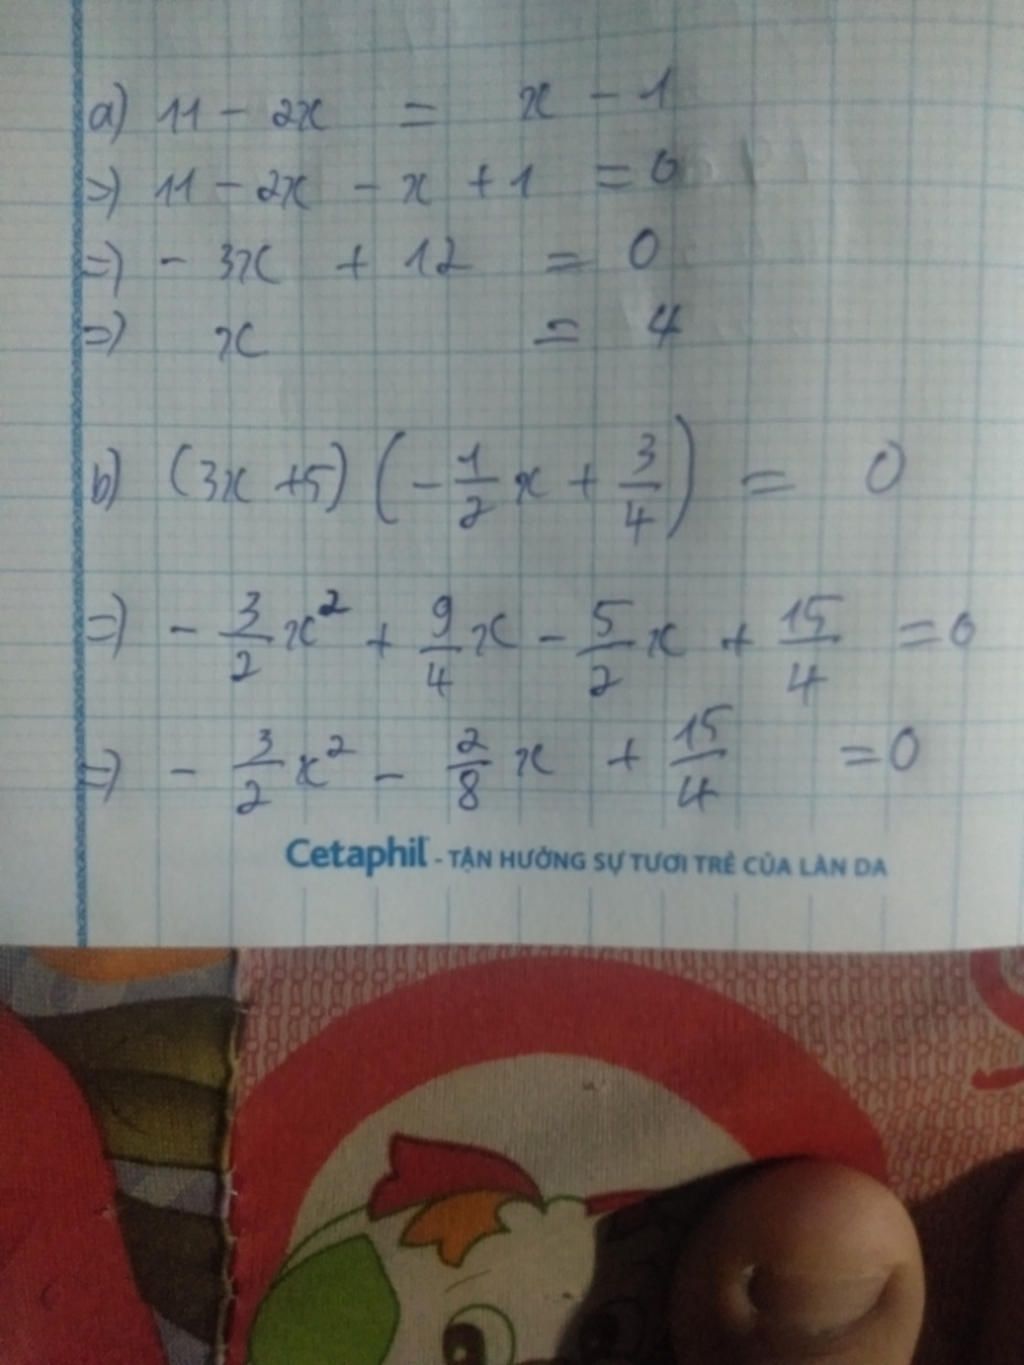 a) 11 - 2x = x - 1
=> 11 - 2x - x + 1 = 0
=> - 3x + 12 = 0
=> x = 4
b) (3x + 5) (-1/2 x + 3/4) = 0
=> - 3/2 x² + 9/4 x - 5/2 x + 15/4 = 0
=> - 3/2 x² - 2/8 x + 15/4 = 0
Cetaphil - TẬN HƯỞNG SỰ TƯƠI TRẺ CỦA LÀN DA